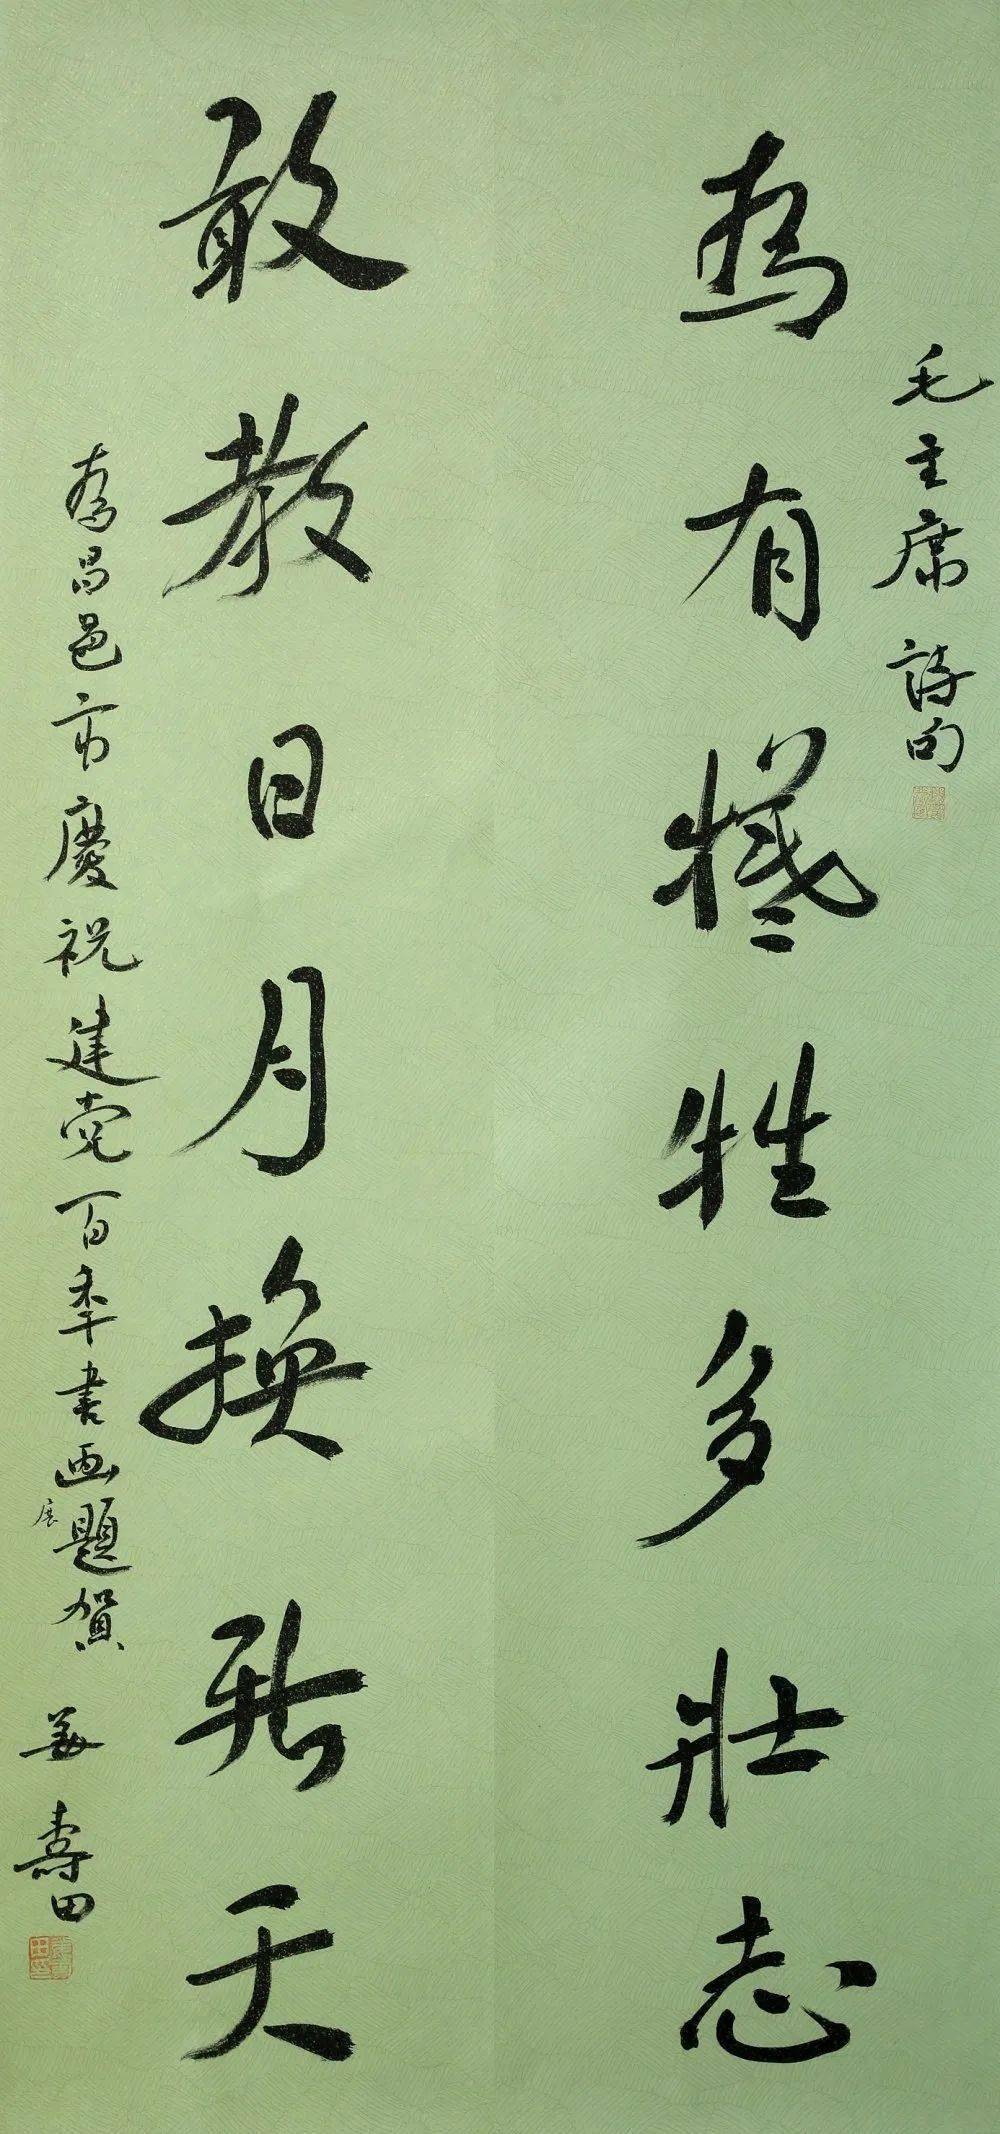 毛主席詩句
為有犧牲多壯志
敢教日月換新天
為昌邑市慶祝建党百秊書画展題賀 姜壽田